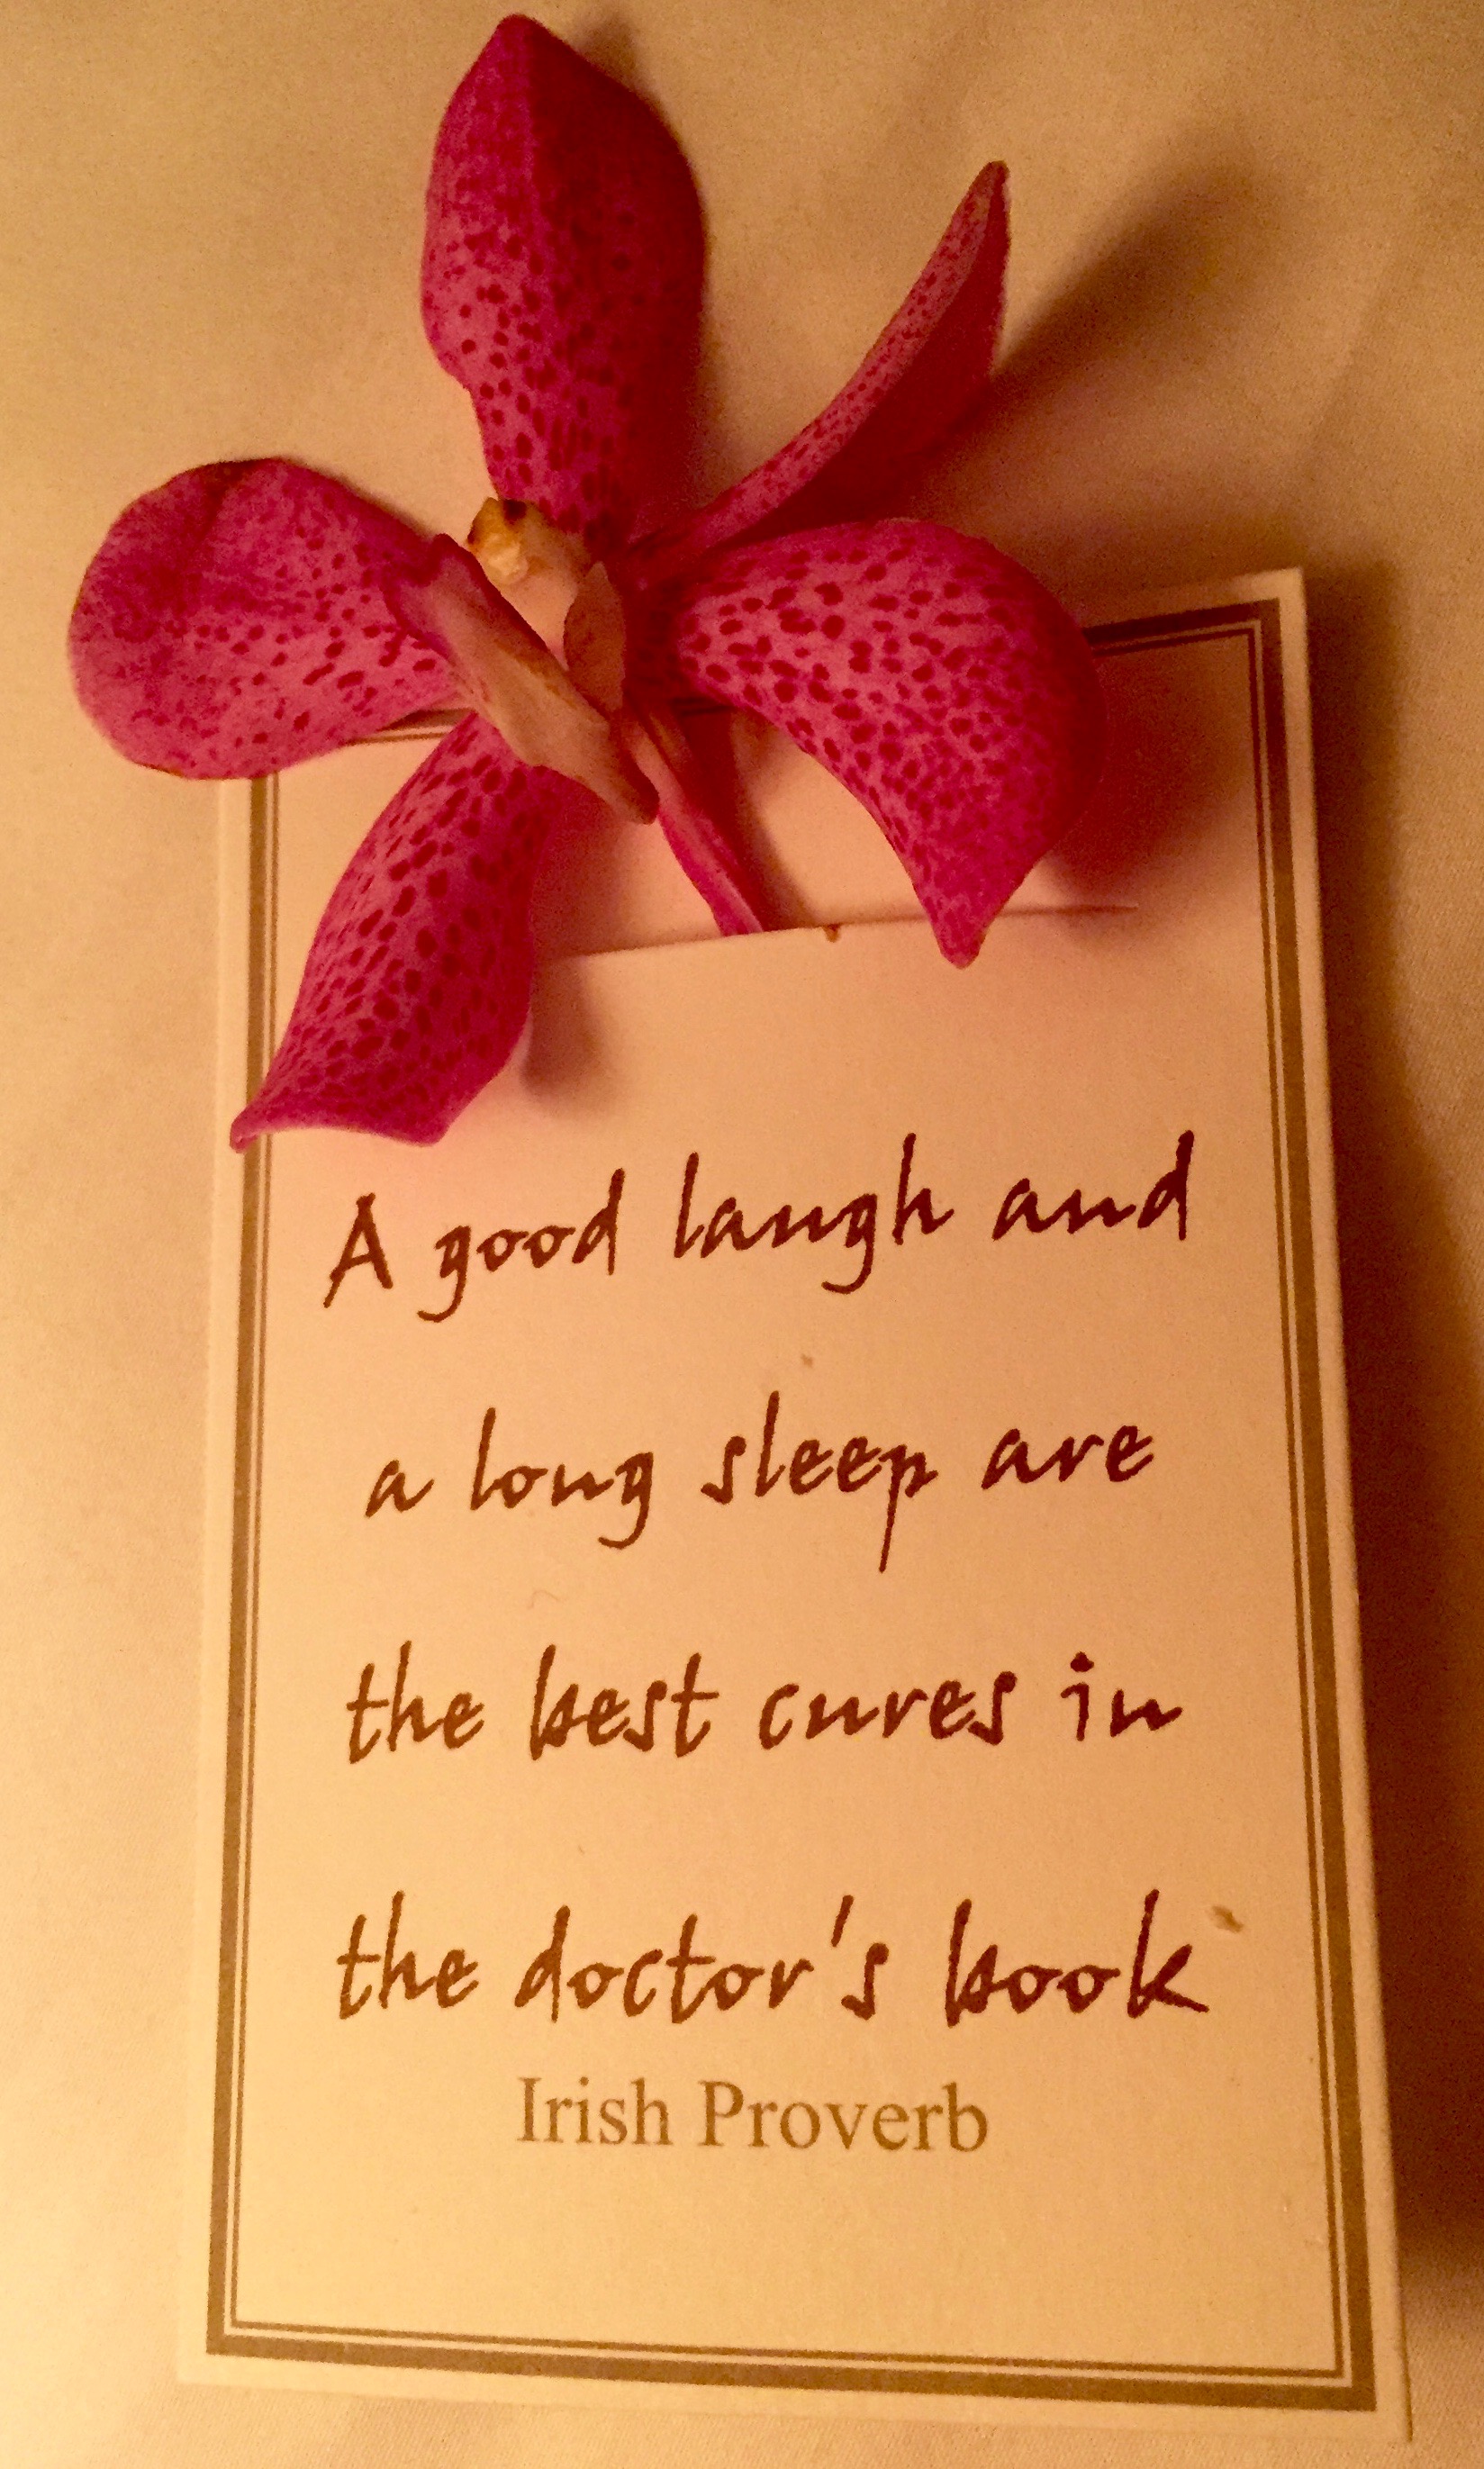 A good laugh and
a long sleep are
the best cures in
the doctor's book
Irish Proverb